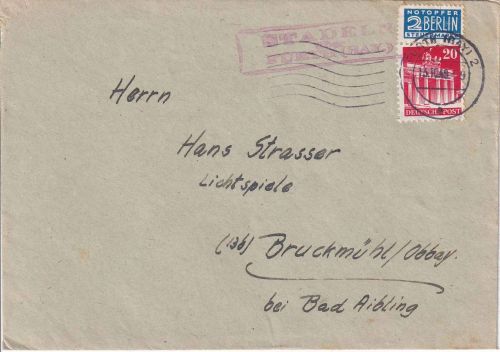 NOTOPFER
2 BERLIN
STEUERMARKE
20
DEUTSCHE POST
Herrn
Hans Strasser
Lichtspiele
(13b) Bruckmühl/Obbay.
bei Bad Aibling